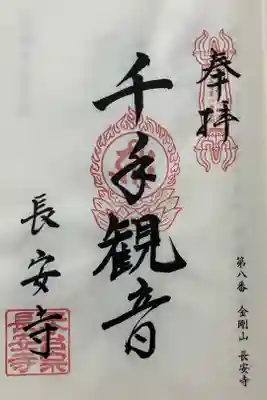 奉拝
千手観音
長安寺
第八番 金剛山 長安寺